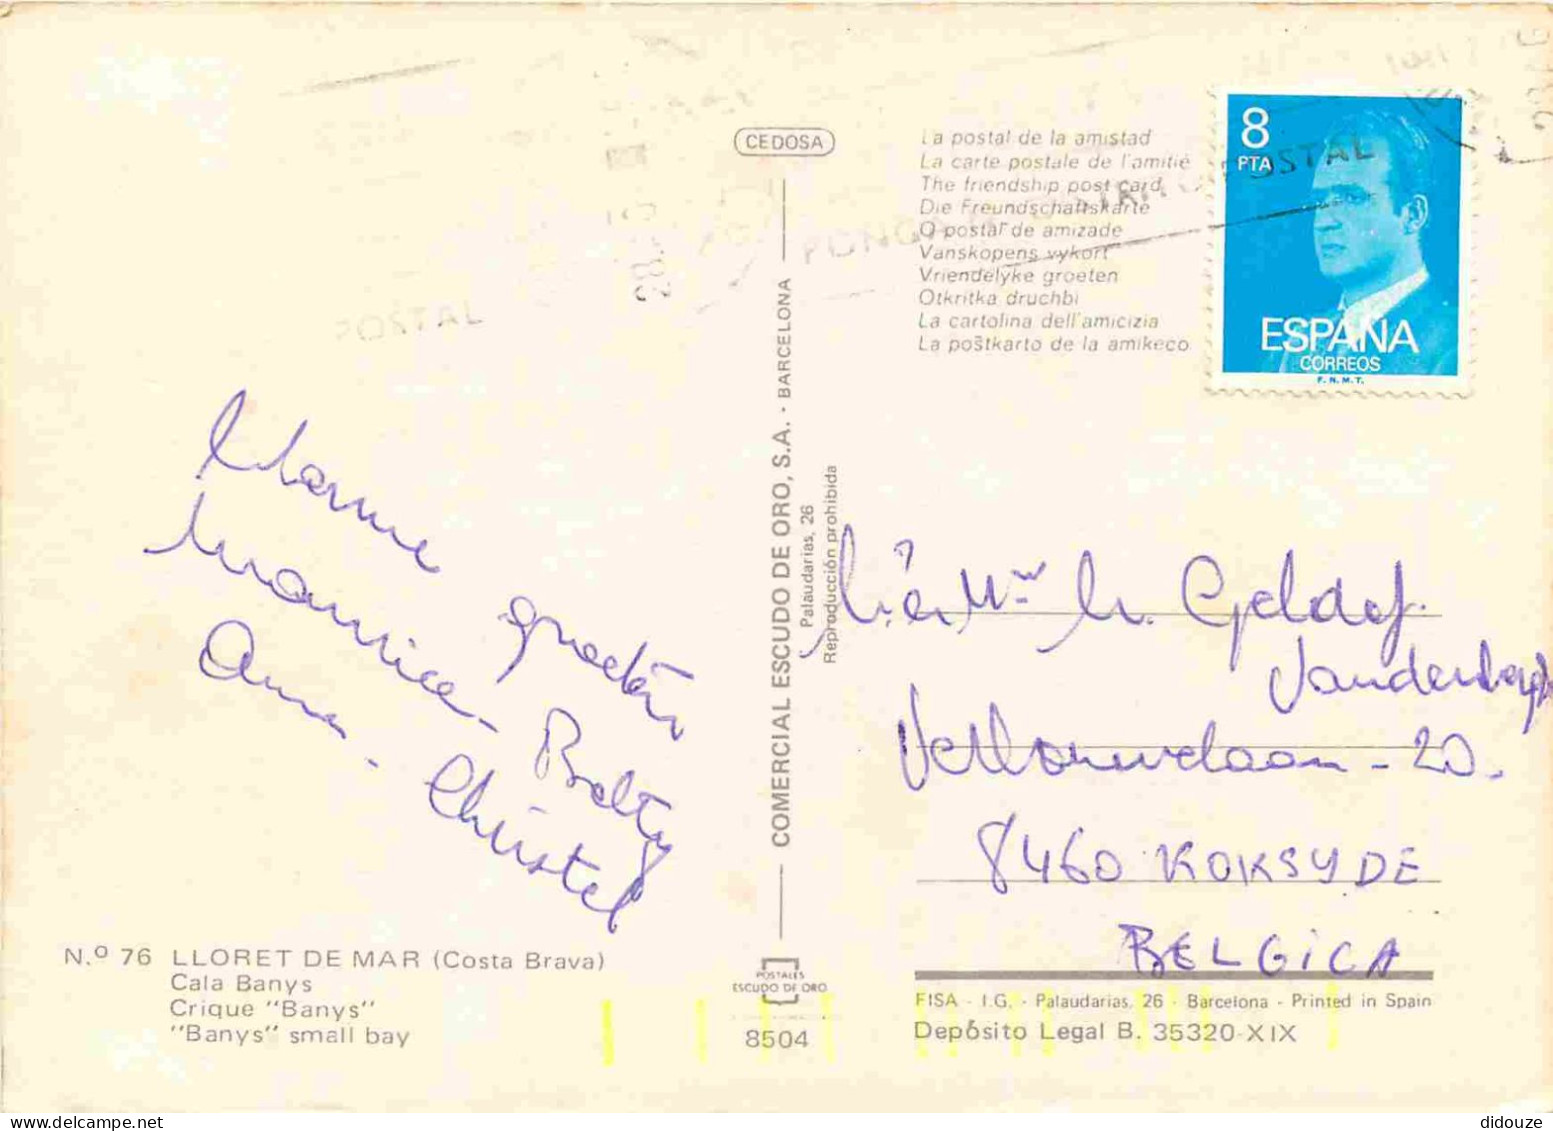 CEDOSA
La postal de la amistad
La carte postale de l'amitié
The friendship post card
Die Freundschaftskarte
O postal de amizade
Vanskopens vykort
Vriendelyke groeten
Otkritka druchbi
La cartolina dell'amicizia
La postkarto de la amikeco
8
PTA
ESPAÑA
CORREOS
F.N.M.T.
POSTAL
POSTAL
Warme groeten
Maurice - Betty
Anna - Christel
COMERCIAL ESCUDO DE ORO, S.A. - BARCELONA
Palaudarias, 26
Reproducción prohibida
Geldof
8460 KOKSYDE
BELGICA
N.º 76 LLORET DE MAR (Costa Brava)
Cala Banys
Crique "Banys"
"Banys" small bay
POSTALES
ESCUDO DE ORO
8504
FISA - I.G. - Palaudarias, 26 - Barcelona - Printed in Spain
Depósito Legal B. 35320-XIX
didouze